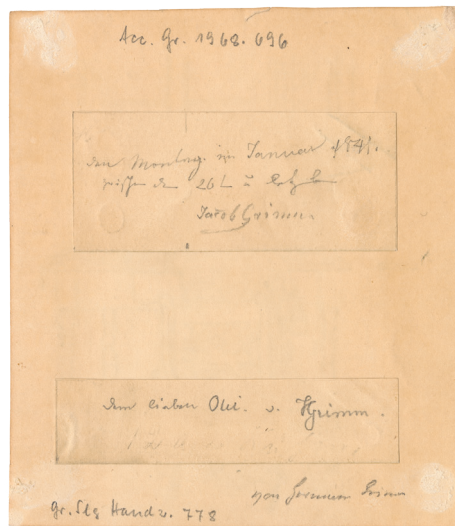 Acc. Gr. 1968.696
den Montag im Januar 1841.
zwischen dem 26 u
Jacob Grimm.
dem lieben Ohl. v. HGrimm.
von Herman Grimm
Gr. Slg Handz. 778